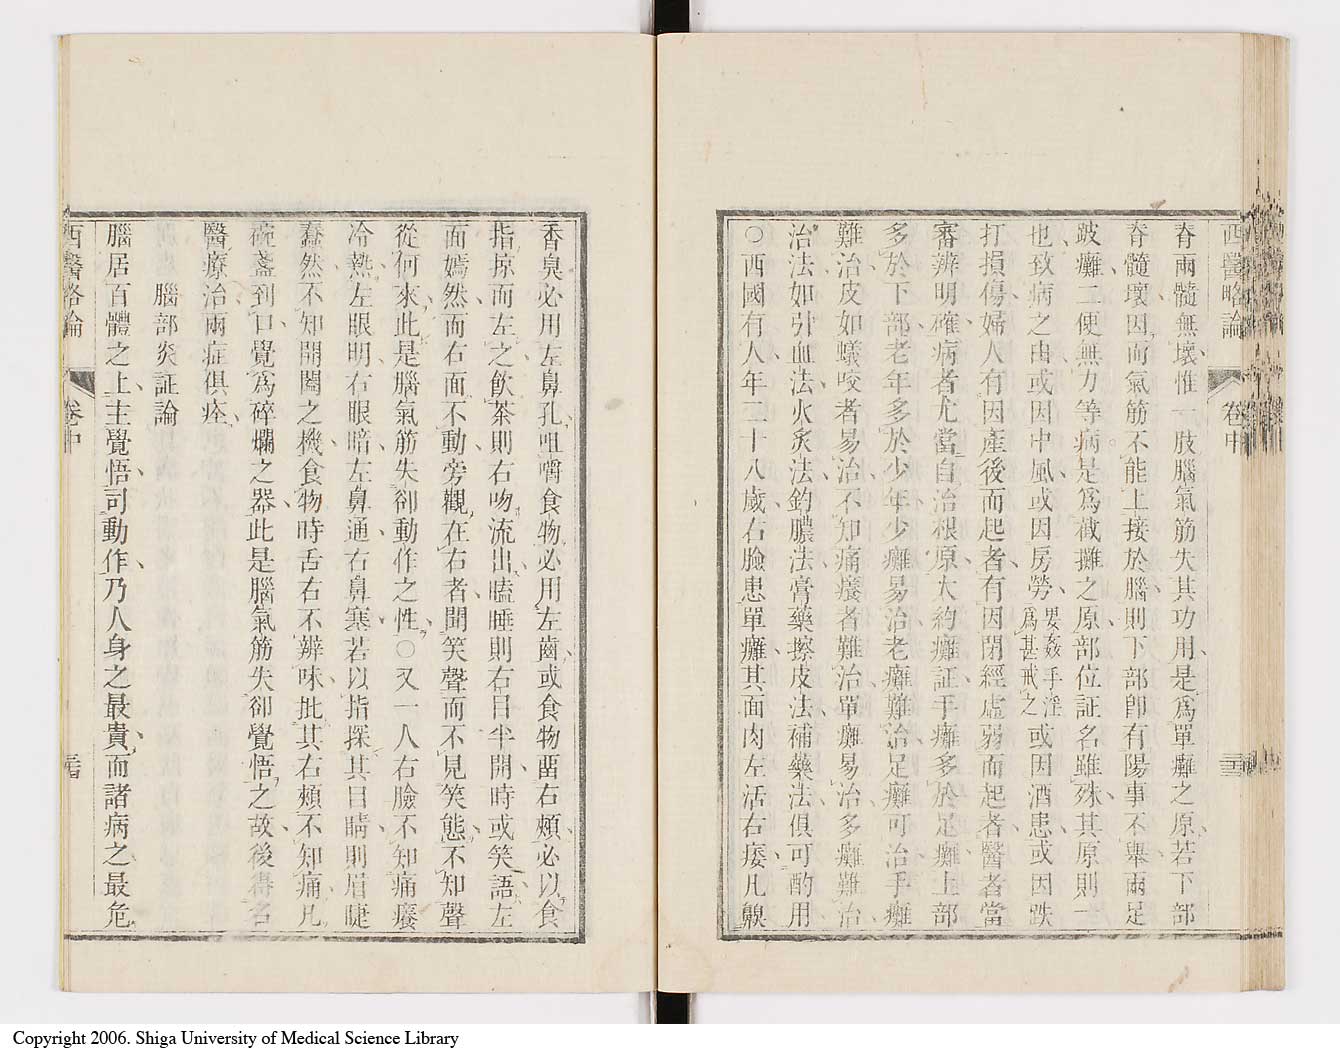 西醫略論 卷中
脊兩髓無壞惟一肢腦氣筋失其功用是爲單癱之原若下部
脊髓壞因而氣筋不能上接於腦則下部卽有陽事不舉兩足
跛癱二便無力等病是爲截癱之原部位証名雖殊其原則一
也致病之由或因中風或因房勞婁姦手淫爲甚戒之或因酒患或因跌
打損傷婦人有因產後而起者有因閉經虛弱而起者醫者當
審辨明確病者尤當自治根原大約癱証手癱多於足癱上部
多於下部老年多於少年少癱易治老癱難治足癱可治手癱
難治皮如蟻咬者易治不知痛癢者難治單癱易治多癱難治
治法如引血法火炙法釣膿法膏藥擦皮法補藥法俱可酌用
○西國有人年二十八歲右臉患單癱其面肉左活右痿凡齅
香臭必用左鼻孔咀嚼食物必用左齒或食物畱右頰必以食
指掠而左之飲茶則右吻流出瞌睡則右目半開時或笑語左
面嫣然而右面不動旁觀在右者聞笑聲而不見笑態不知聲
從何來此是腦氣筋失卻動作之性○又一人右臉不知痛癢
冷熱左眼明右眼暗左鼻通右鼻塞若以指探其目睛則眉睫
蠢然不知開闔之機食物時舌右不辨味批其右頰不知痛凡
碗盞到口覺爲碎爛之器此是腦氣筋失卻覺悟之故後得名
醫療治兩症俱痊
腦部炎証論
腦居百體之上主覺悟司動作乃人身之最貴而諸病之最危
西醫略論 卷中
Copyright 2006. Shiga University of Medical Science Library